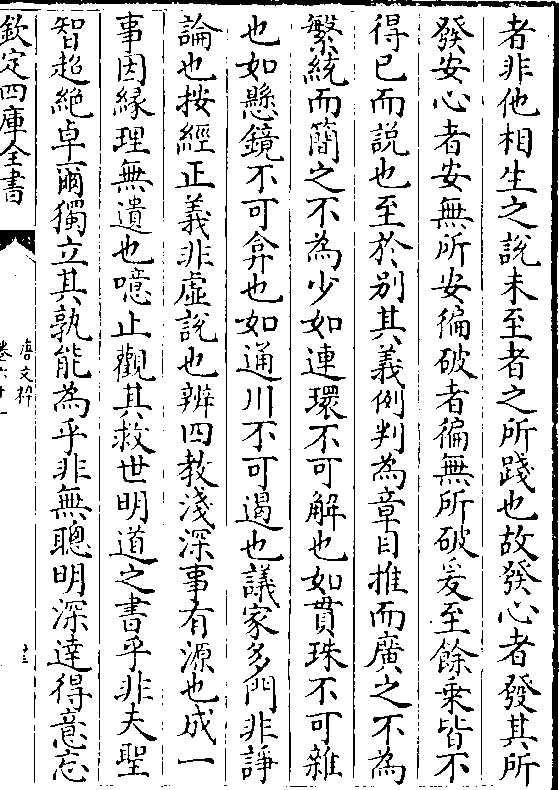 者非他相生之說未至者之所踐也故發心者發其所
發安心者安無所安徧破者徧無所破爰至餘乗皆不
得已而說也至於别其義例判為章目推而廣之不為
繁統而簡之不為少如連環不可解也如貫珠不可雜
也如懸鏡不可弇也如通川不可遏也議家多門非諍
論也按經正義非虛說也辨四教淺深事有源也成一
事因緣理無遺也噫止觀其救世明道之書乎非夫聖
智超絶卓爾獨立其孰能為乎非無聰明深達得意忘
欽定四庫全書
唐文粹
卷六十一